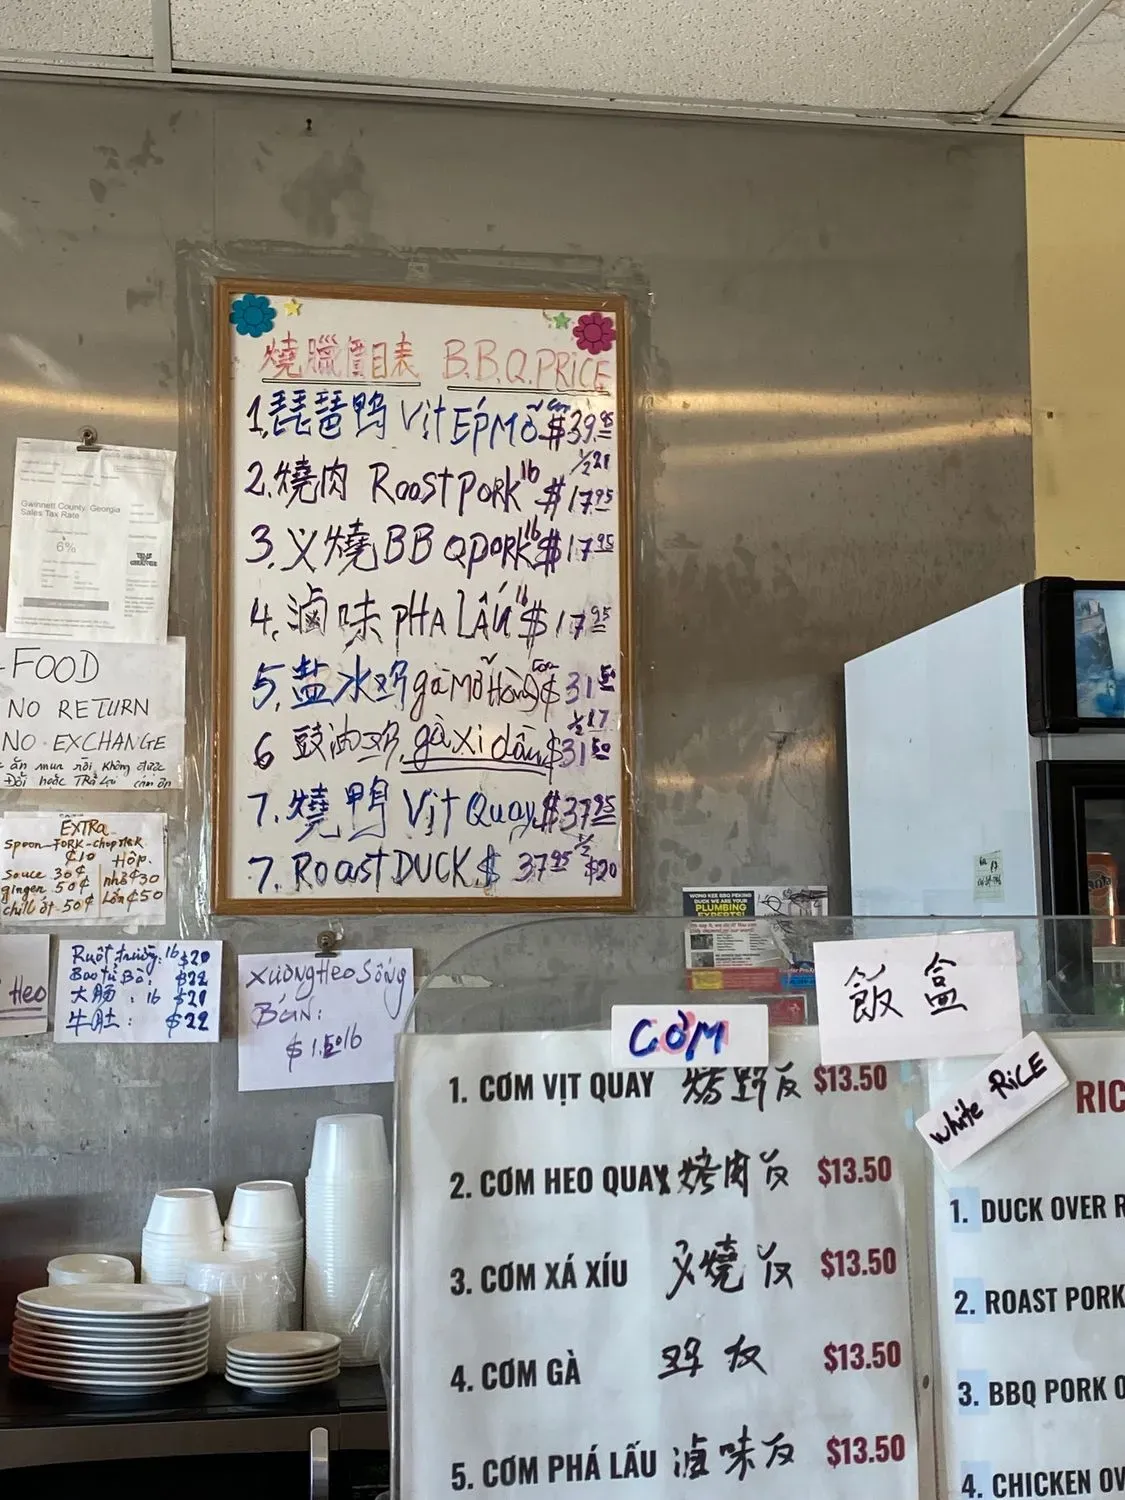 燒臘價目表 B.B.Q.PRICE
1.琵琶鴨 Vịt ÉP MỠ con $39.95
1/2 21
2.燒肉 Roast PORK lb $17.95
3.义燒 BBQ PORK lb $17.95
4.滷味 PHA LẤU lb $17.95
5.盐水鸡 gà Mỡ Hàng con $31.50
1/2 17
6 豉油鸡 gà xì dầu $31.50
7.燒鴨 Vịt Quay $37.95
7. Roast DUCK $ 37.95 1/2 $20
Gwinnett County, Georgia
Sales Tax Rate
6%
FOOD
NO RETURN
NO EXCHANGE
ăn mua rồi không được
Đổi hoặc TRả Lại cảm ơn
EXTRA
Spoon-FORK-chopstek
¢10
Hộp.
Sauce 30¢
nhỏ ¢30
ginger 50¢
Lớn ¢50
chill ớt 50¢
Heo
Ruột trường: lb $20
Bao tử Bò: $22
大肠 : lb $20
牛肚: $22
Xương Heo Sống
BáN:
$ 1.50 lb
WONG KEE BBQ PEKING
DUCK WE ARE YOUR
PLUMBING
EXPERTS!
CƠM
飯盒
White RiCE
1. CƠM VỊT QUAY 烤野反 $13.50
2. CƠM HEO QUAY 烤肉反 $13.50
3. CƠM XÁ XÍU 义燒反 $13.50
4. CƠM GÀ 鸡反 $13.50
5. CƠM PHÁ LẤU 滷味反 $13.50
RIC
1. DUCK OVER R
2. ROAST PORK
3. BBQ PORK O
4. CHICKEN OV